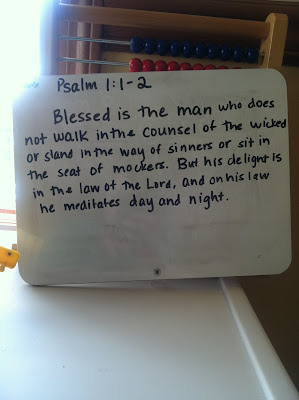 Psalm 1:1-2
Blessed is the man who does
not walk in the counsel of the wicked
or stand in the way of sinners or sit in
the seat of mockers. But his delight is
in the law of the Lord, and on his law
he meditates day and night.